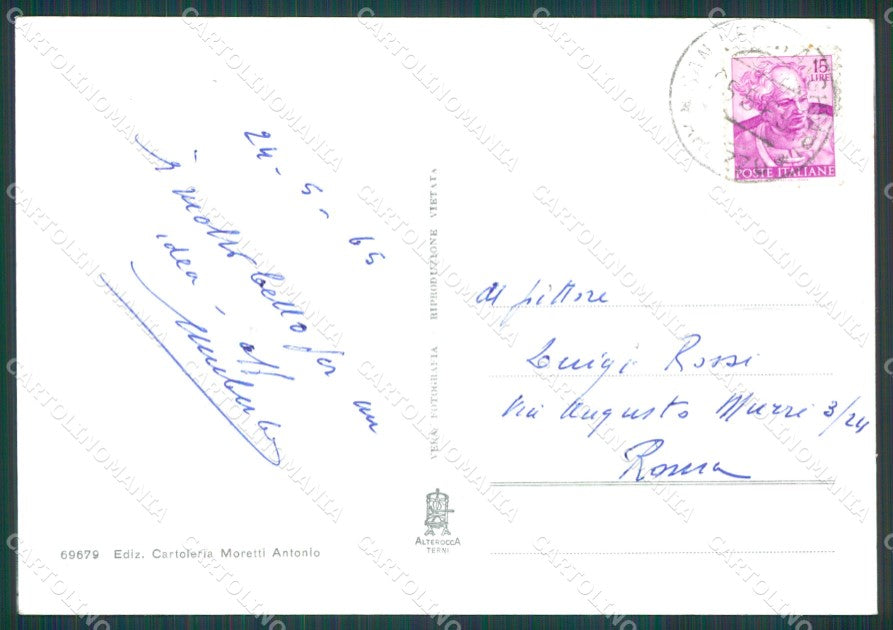 24-5-65
è molto bello per un
idea - aff
Umberto
VERA FOTOGRAFIA RIPRODUZIONE VIETATA
15
LIRE
POSTE ITALIANE
al pittore
Luigi Rossi
Via Augusto Murri 3/24
Roma
ALTEROCCA
TERNI
69679 Ediz. Cartoleria Moretti Antonio
CARTOLINOMANIA